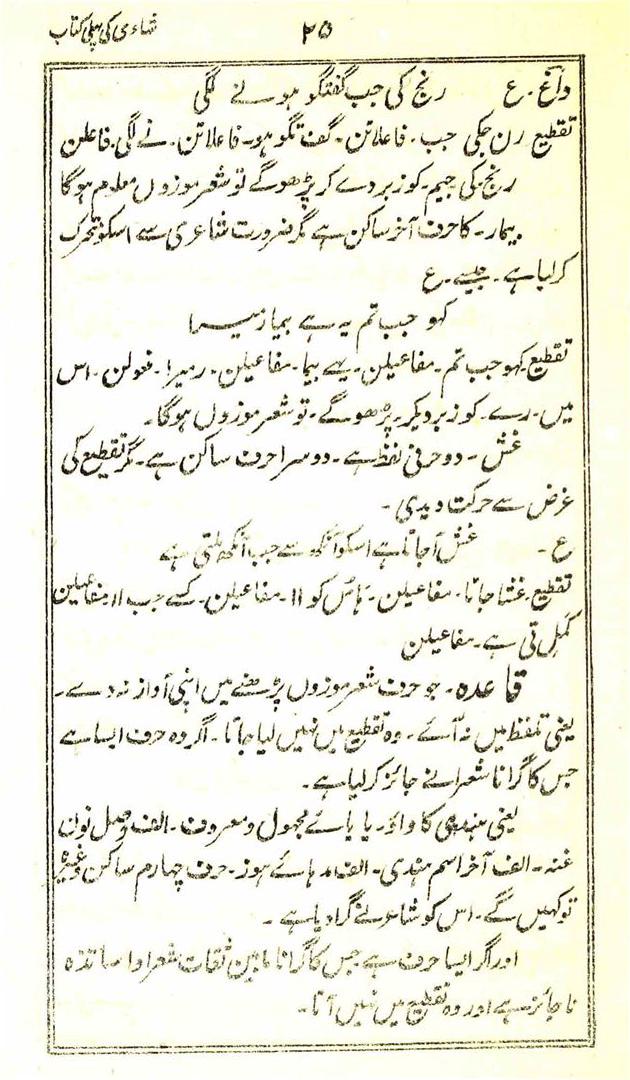 شاعری کی پہلی کتاب
۲۵
داغ۔ ع رنج کی جب گفتگو ہونے لگی
تقطیع رن جکی جب۔ فاعلاتن۔ گفت گو ہو۔ فاعلاتن۔ نے لگی۔ فاعلن
رنج۔ کی جیم۔ کو زبر دے کر پڑھوگے تو شعر موزوں معلوم ہوگا
بیمار۔ کا حرف آخر ساکن ہے مگر ضرورت شاعری سے اسکو متحرک
کر لیا ہے۔ جیسے۔ ع
کہو جب تم یہ ہے بیمار میرا
تقطیع۔ کہو جب تم۔ مفاعیلن۔ یہے بیما۔ مفاعیلن۔ رمیرا۔ فعولن۔ اس
میں۔ رے۔ کو زبر دیکر۔ پڑھوگے۔ تو شعر موزوں ہوگا۔
غش۔ دو حرفی لفظ ہے۔ دوسرا حرف ساکن ہے۔ مگر تقطیع کی
غرض سے حرکت دیدی۔
ع۔ غش آجاتا ہے اسکو آنکھ سے جب آنکھ ملتی ہے
تقطیع۔ غشا جاتا۔ مفاعیلن۔ ہاس کو اا۔ مفاعیلن۔ کسے جب اا۔ مفاعیلن
کمل تی ہے۔ مفاعیلن
قاعدہ۔ جو حرف شعر موزوں پڑھنے میں اپنی آواز نہ دے۔
یعنی تلفظ میں نہ آئے۔ وہ تقطیع میں نہیں لیا جاتا۔ اگر وہ حرف ایسا ہے
جس کا گرانا شعرا نے جائز کر لیا ہے۔
یعنی ہندی کا واؤ۔ یا یائے مجہول و معروف۔ الف وصل نون
غنہ۔ الف آخر اسم ہندی۔ الف ہائے ہوز۔ حرف چہارم ساکن وغیرہ
تو کہیں گے۔ اس کو شاعر نے گرا دیا ہے۔
اور اگر ایسا حرف ہے جس کا گرانا مابین ثقات شعرا و اساتذہ
ناجائز ہے اور وہ تقطیع میں نہیں آتا۔